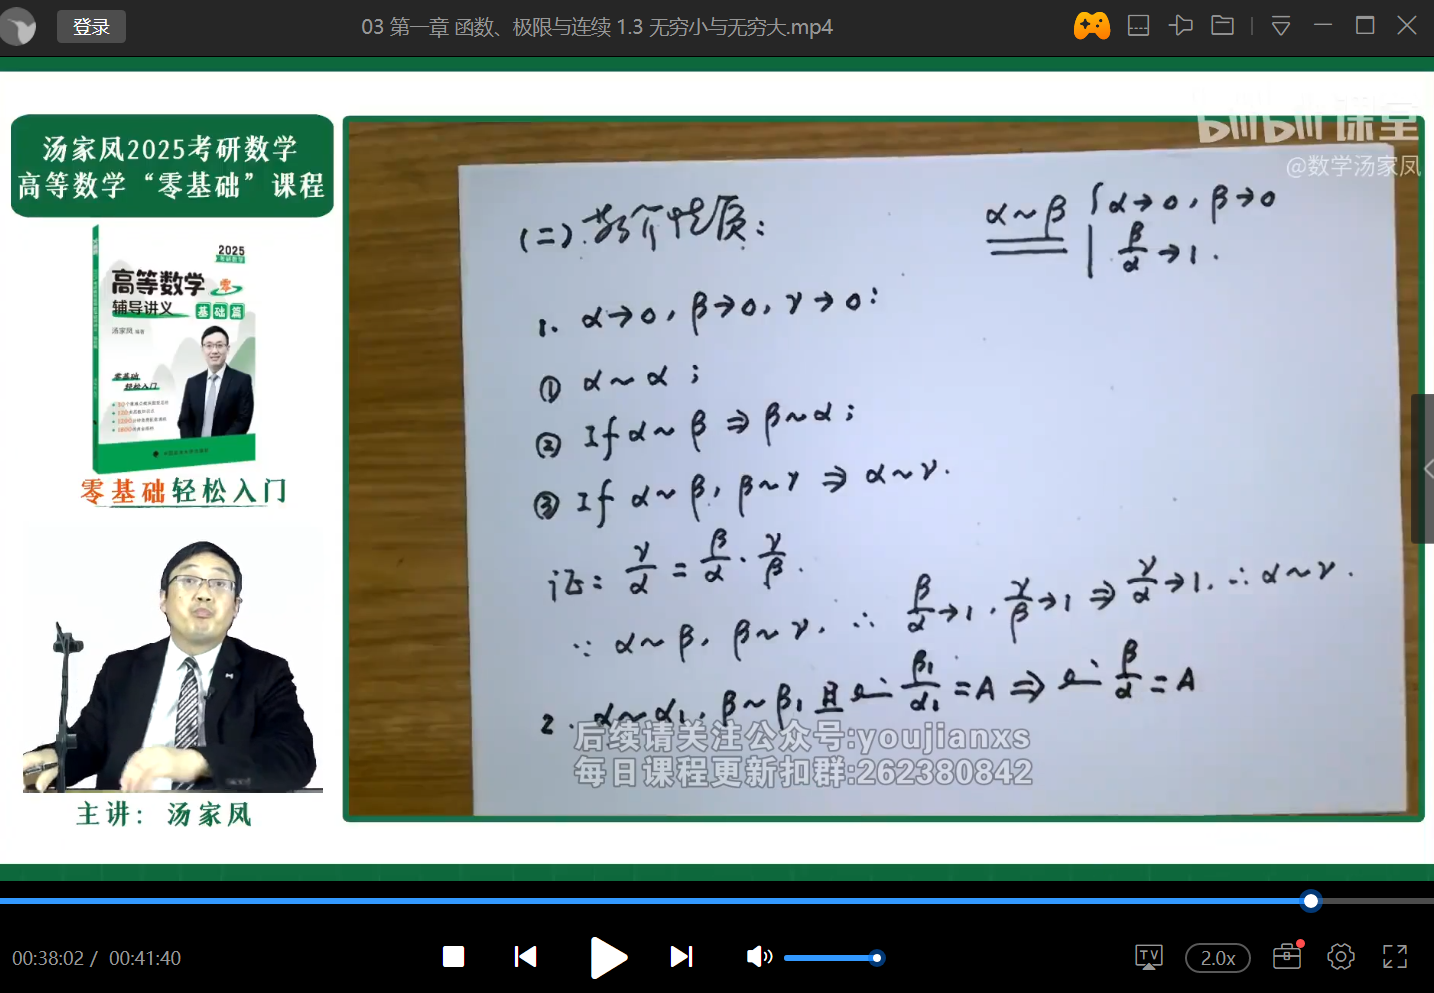 登录
03 第一章 函数、极限与连续 1.3 无穷小与无穷大.mp4
汤家凤2025考研数学
高等数学“零基础”课程
2025
考研数学
高等数学
零
辅导讲义
基础篇
汤家凤
零基础
轻松入门
零基础轻松入门
主讲：汤家凤
bilibili课堂
@数学汤家凤
(二).等价性质:
α~β { α→0, β→0
β/α→1.
1. α→0, β→0, γ→0:
① α~α;
② If α~β ⇒ β~α;
③ If α~β, β~γ ⇒ α~γ.
证: γ/α = β/α · γ/β.
∵ α~β, β~γ, ∴ β/α→1, γ/β→1 ⇒ γ/α→1, ∴ α~γ.
2. α~α₁, β~β₁ 且 lim β₁/α₁ = A ⇒ lim β/α = A
后续请关注公众号:youjianxs
每日课程更新扣群:262380842
00:38:02 / 00:41:40
TV
2.0x